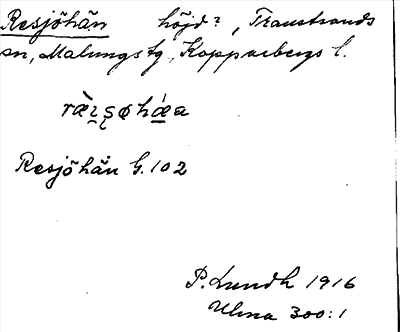 Resjöhän höjd?, Transtrands
sn, Malungs tg., Kopparbergs l.
Resjöhän G. 102
P. Lundh 1916
Ulma 300:1